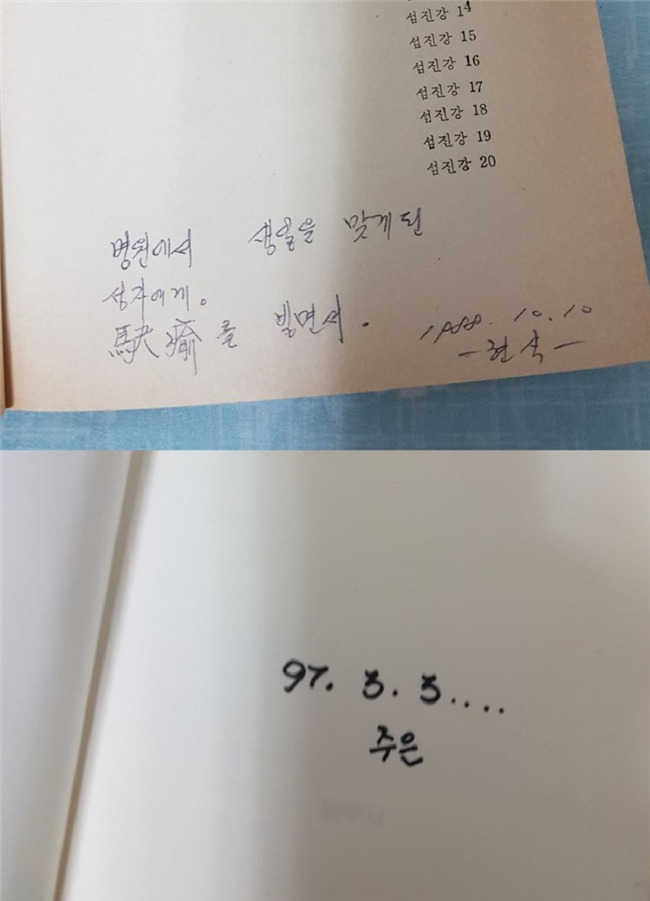 섬진강 14
섬진강 15
섬진강 16
섬진강 17
섬진강 18
섬진강 19
섬진강 20
병원에서 생일을 맞게된
성자에게。
快癒를 빌면서.
1988. 10. 10
-현식-
97. 3. 3....
주은